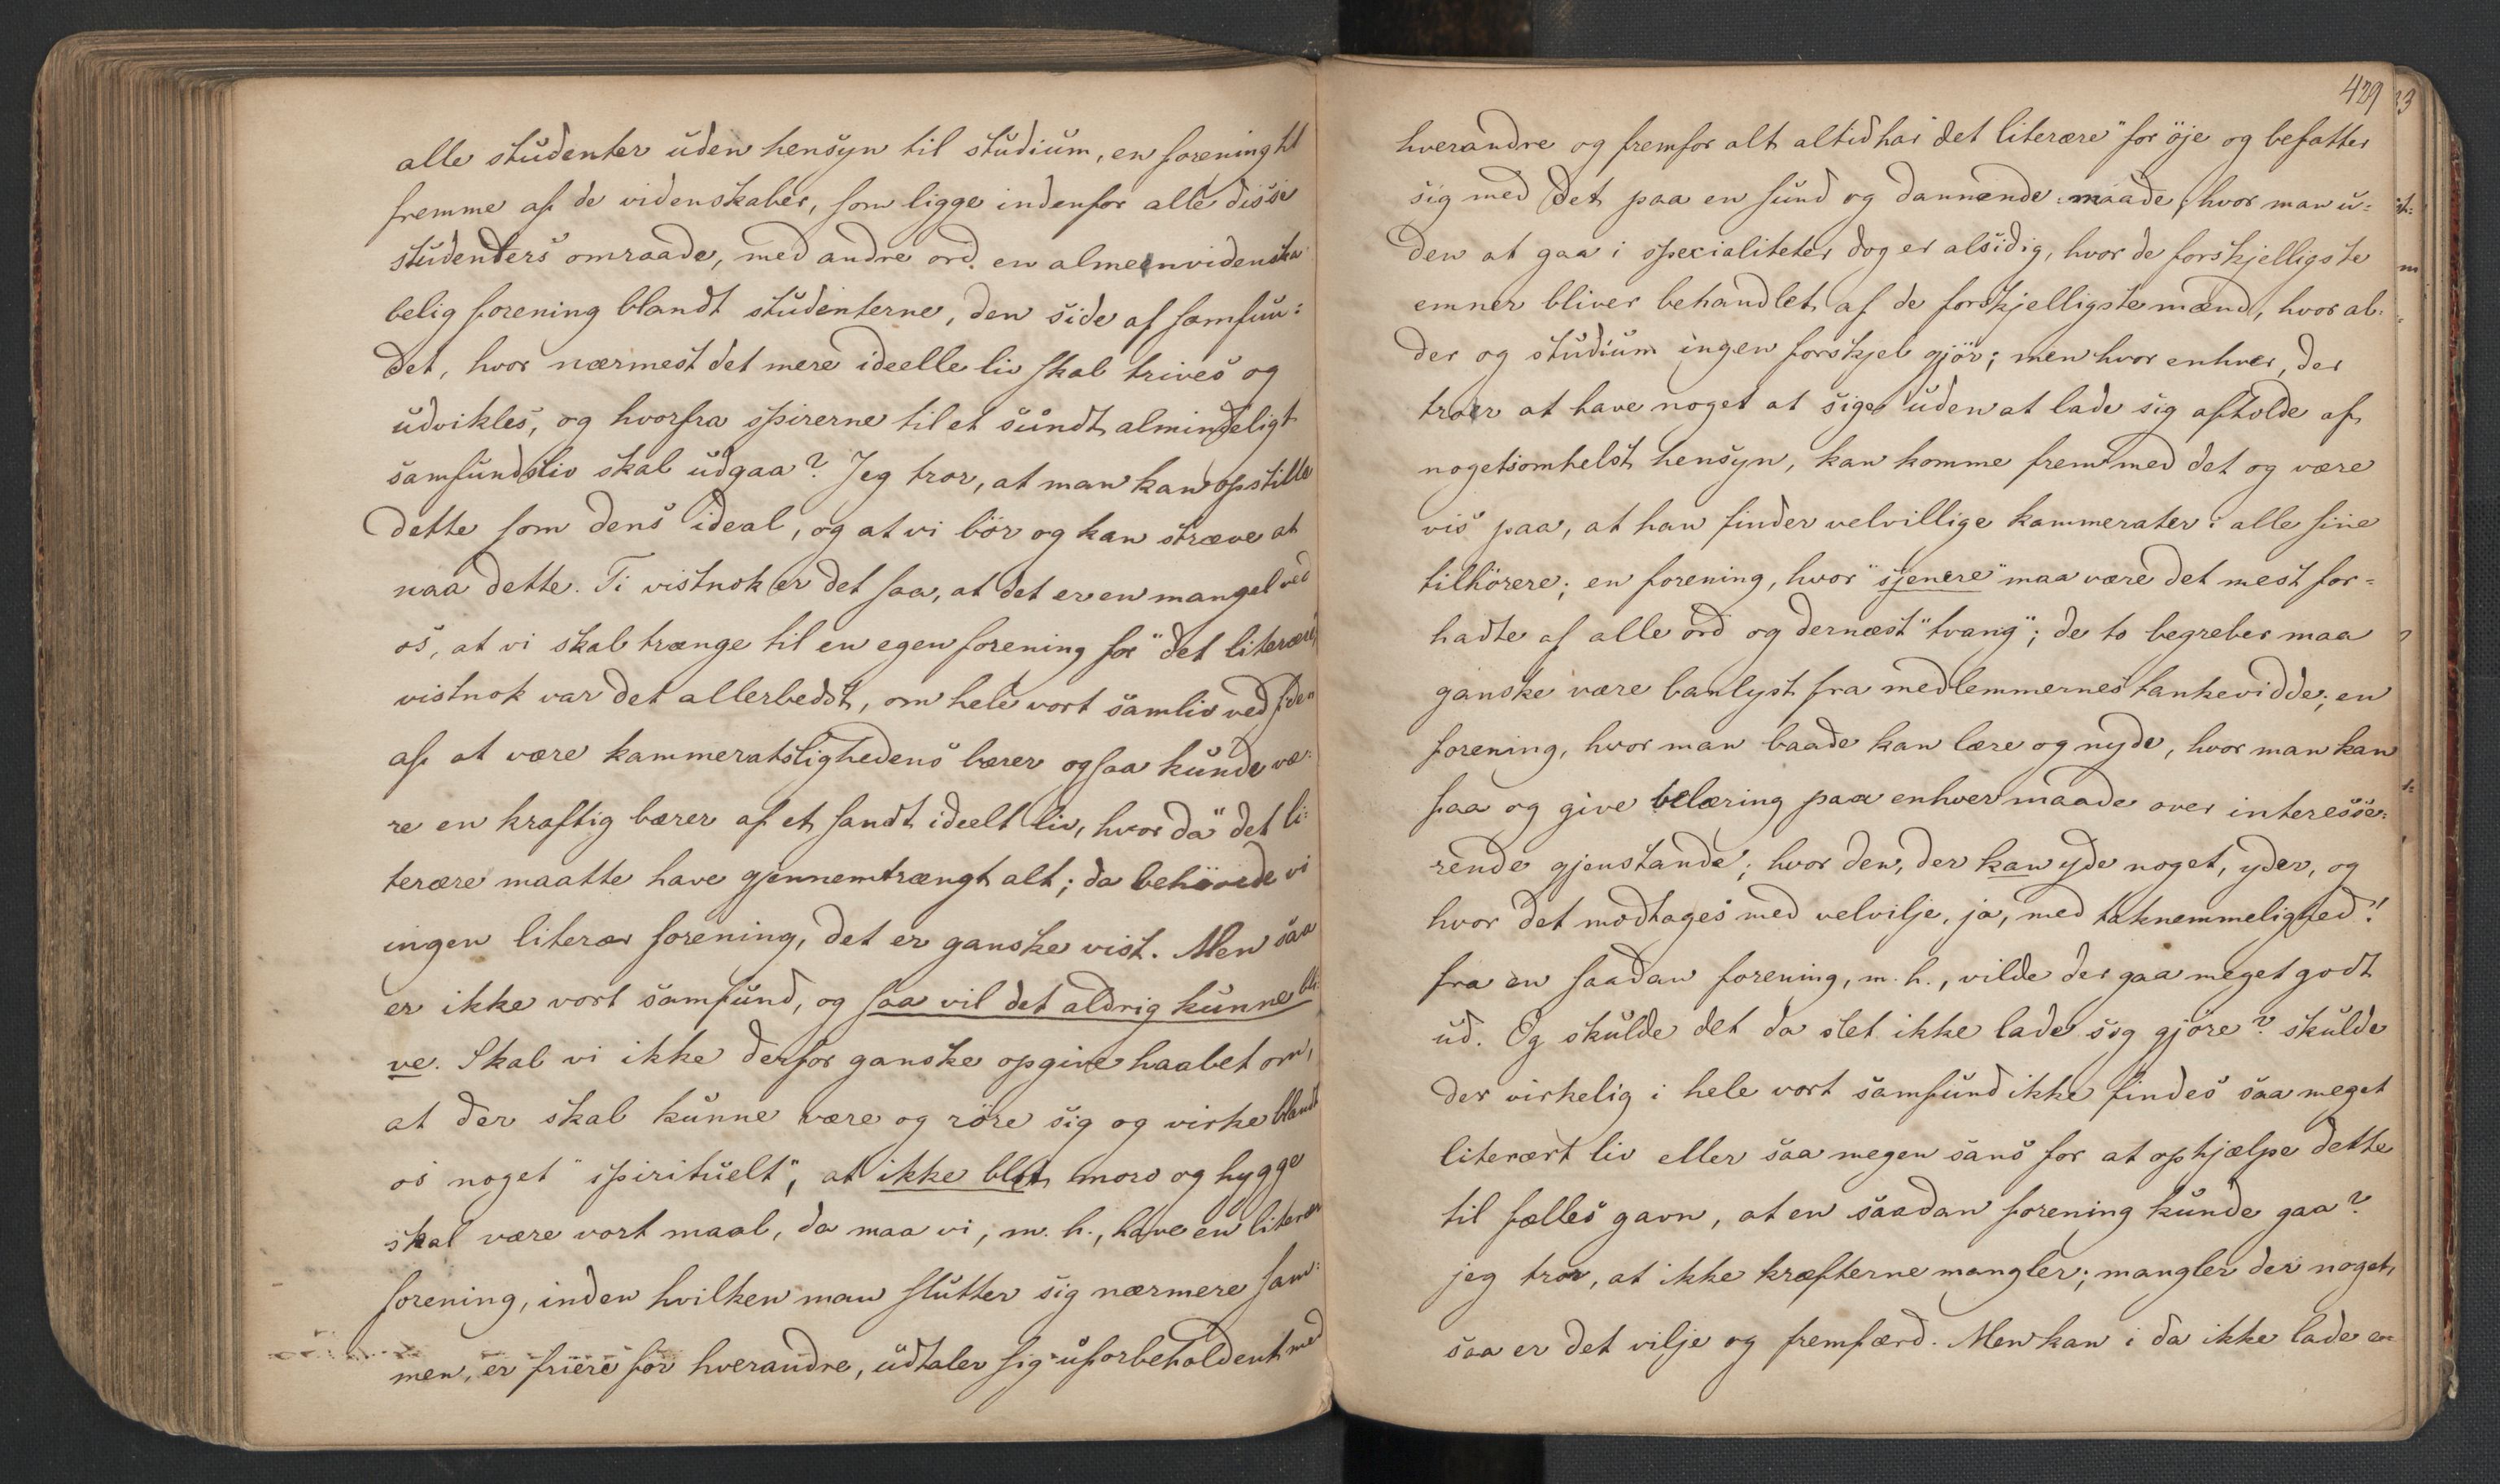 alle studenter uden hensyn til studium, en forening til
fremme af de videnskaber, som ligge indenfor alle disse
studenters omraade, med andre ord, en almeenvidenska
belig forening blandt studenterne, den side af samfun:
det, hvor nærmest det mere ideelle liv skal trives og
udvikles, og hvorfra spirerne til et sundt almindeligt
samfundsliv skal udgaa? Jeg tror, at man kan opstille
dette som dens ideal, og at vi bör og kan stræve at
naa dette. Ti vistnok er det saa, at det er en mangel ved
os, at vi skal trænge til en egen forening for "det literære",
vistnok var det allerbedst, om hele vort samliv ved siden
af at være kammeratslighedens bærer ogsaa kunde væ:
re en kraftig bærer af et sandt ideelt liv, hvor da "det li:
terære maatte have gjennemtrængt alt; da behövede vi
ingen literær forening, det er ganske vist. Men saa
er ikke vort samfund, og saa vil det aldrig kunne bli:
ve. Skal vi ikke derfor ganske opgive haabet om,
at der skal kunne være og röre sig og virke blandt
os noget "spirituelt", at ikke blot moro og hygge
skal være vort maal, da maa vi, m. h., have en literær
forening, inden hvilken man slutter sig nærmere sam:
men, er friere for hverandre, udtaler sig uforbeholdent med
429
hverandre og fremfor alt altid har "det literære" for öje og befatter
sig med det paa en sund og dannende maade, hvor man u:
den at gaa i specialiteter dog er alsidig, hvor de forskjelligste
emner bliver behandlet af de forskjelligste mænd, hvor al:
der og studium ingen forskjel gjör; men hvor enhver, der
troer at have noget at sige uden at lade sig afholde af
nogetsomhelst hensyn, kan komme frem med det og være
vis paa, at han finder velvillige kammerater i alle sine
tilhörere; en forening, hvor "sjenere" maa være det mest for=
hadte af alle ord og dernæst "tvang"; de to begreber maa
ganske være banlyst fra medlemmernes tankevidde; en
forening, hvor man baade kan lære og nyde, hvor man kan
faa og give belæring paa enhver maade over interesse:
rende gjenstande; hvor den, der kan yde noget, yder, og
hvor det modtages med velvilje, ja, med taknemmelighed!
fra en saadan forening, m. h., vilde der gaa meget godt
ud. Og skulde det da slet ikke lade sig gjöre? skulde
der virkelig i hele vort samfund ikke findes saa meget
literært liv eller saa megen sans for at ophjælpe dette
til fælles gavn, at en saadan forening kunde gaa?
jeg tror, at ikke kræfterne mangler; mangler der noget,
saa er det vilje og fremfærd. Men kan i da ikke lade en